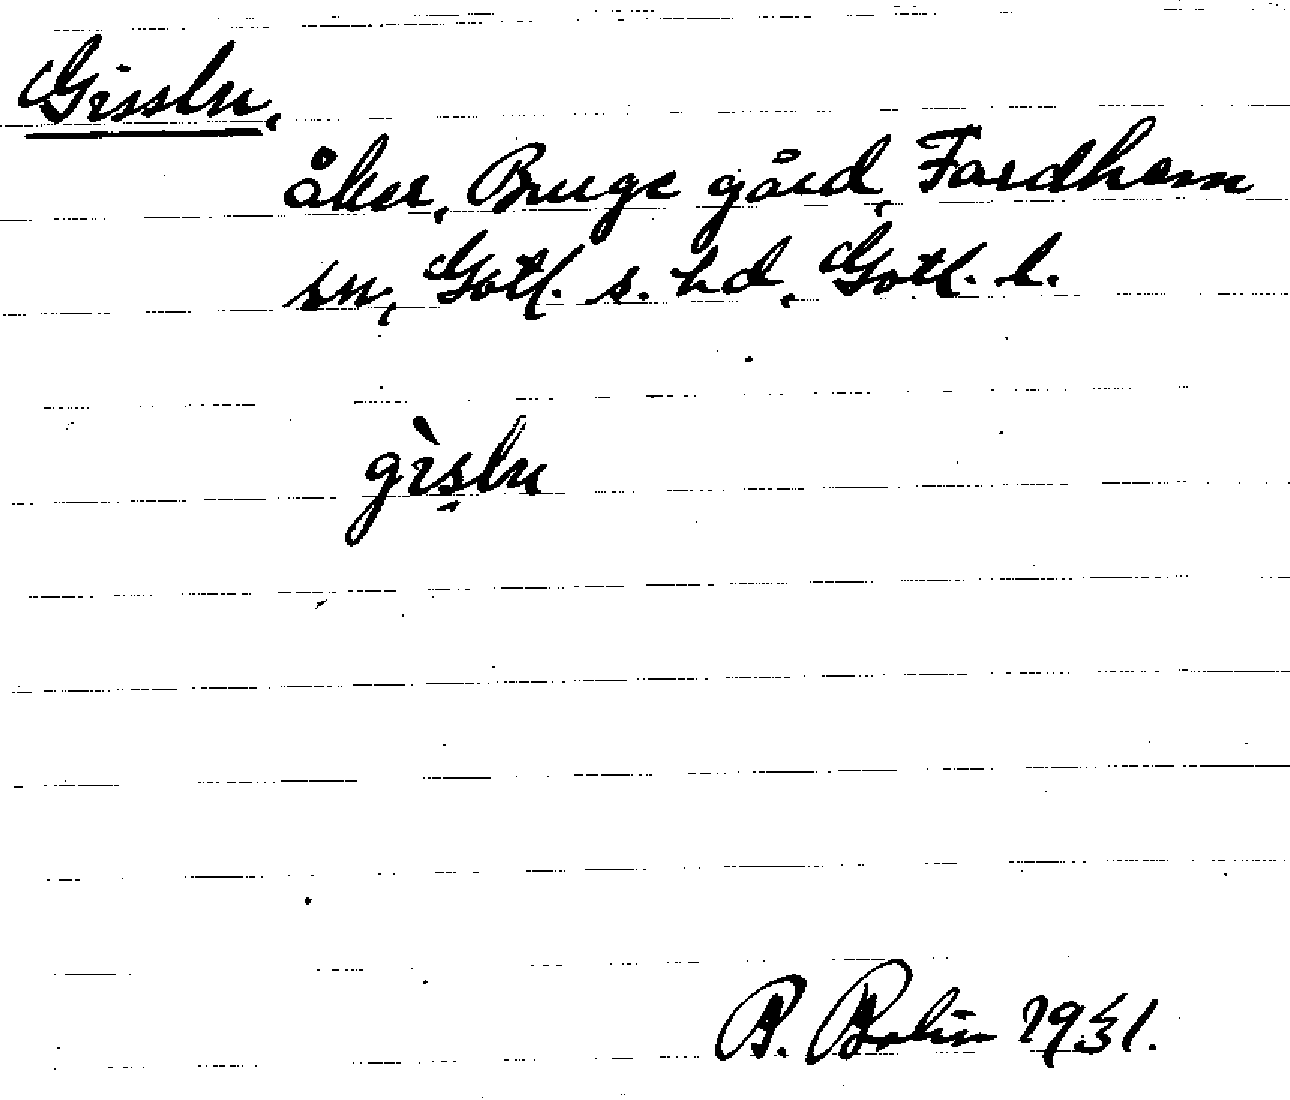 Gissln,
åker, Bruge gård, Fardhem
sn, Gotl. s. hd, Gotl. l.
gìsln
B. Bolin 1931.